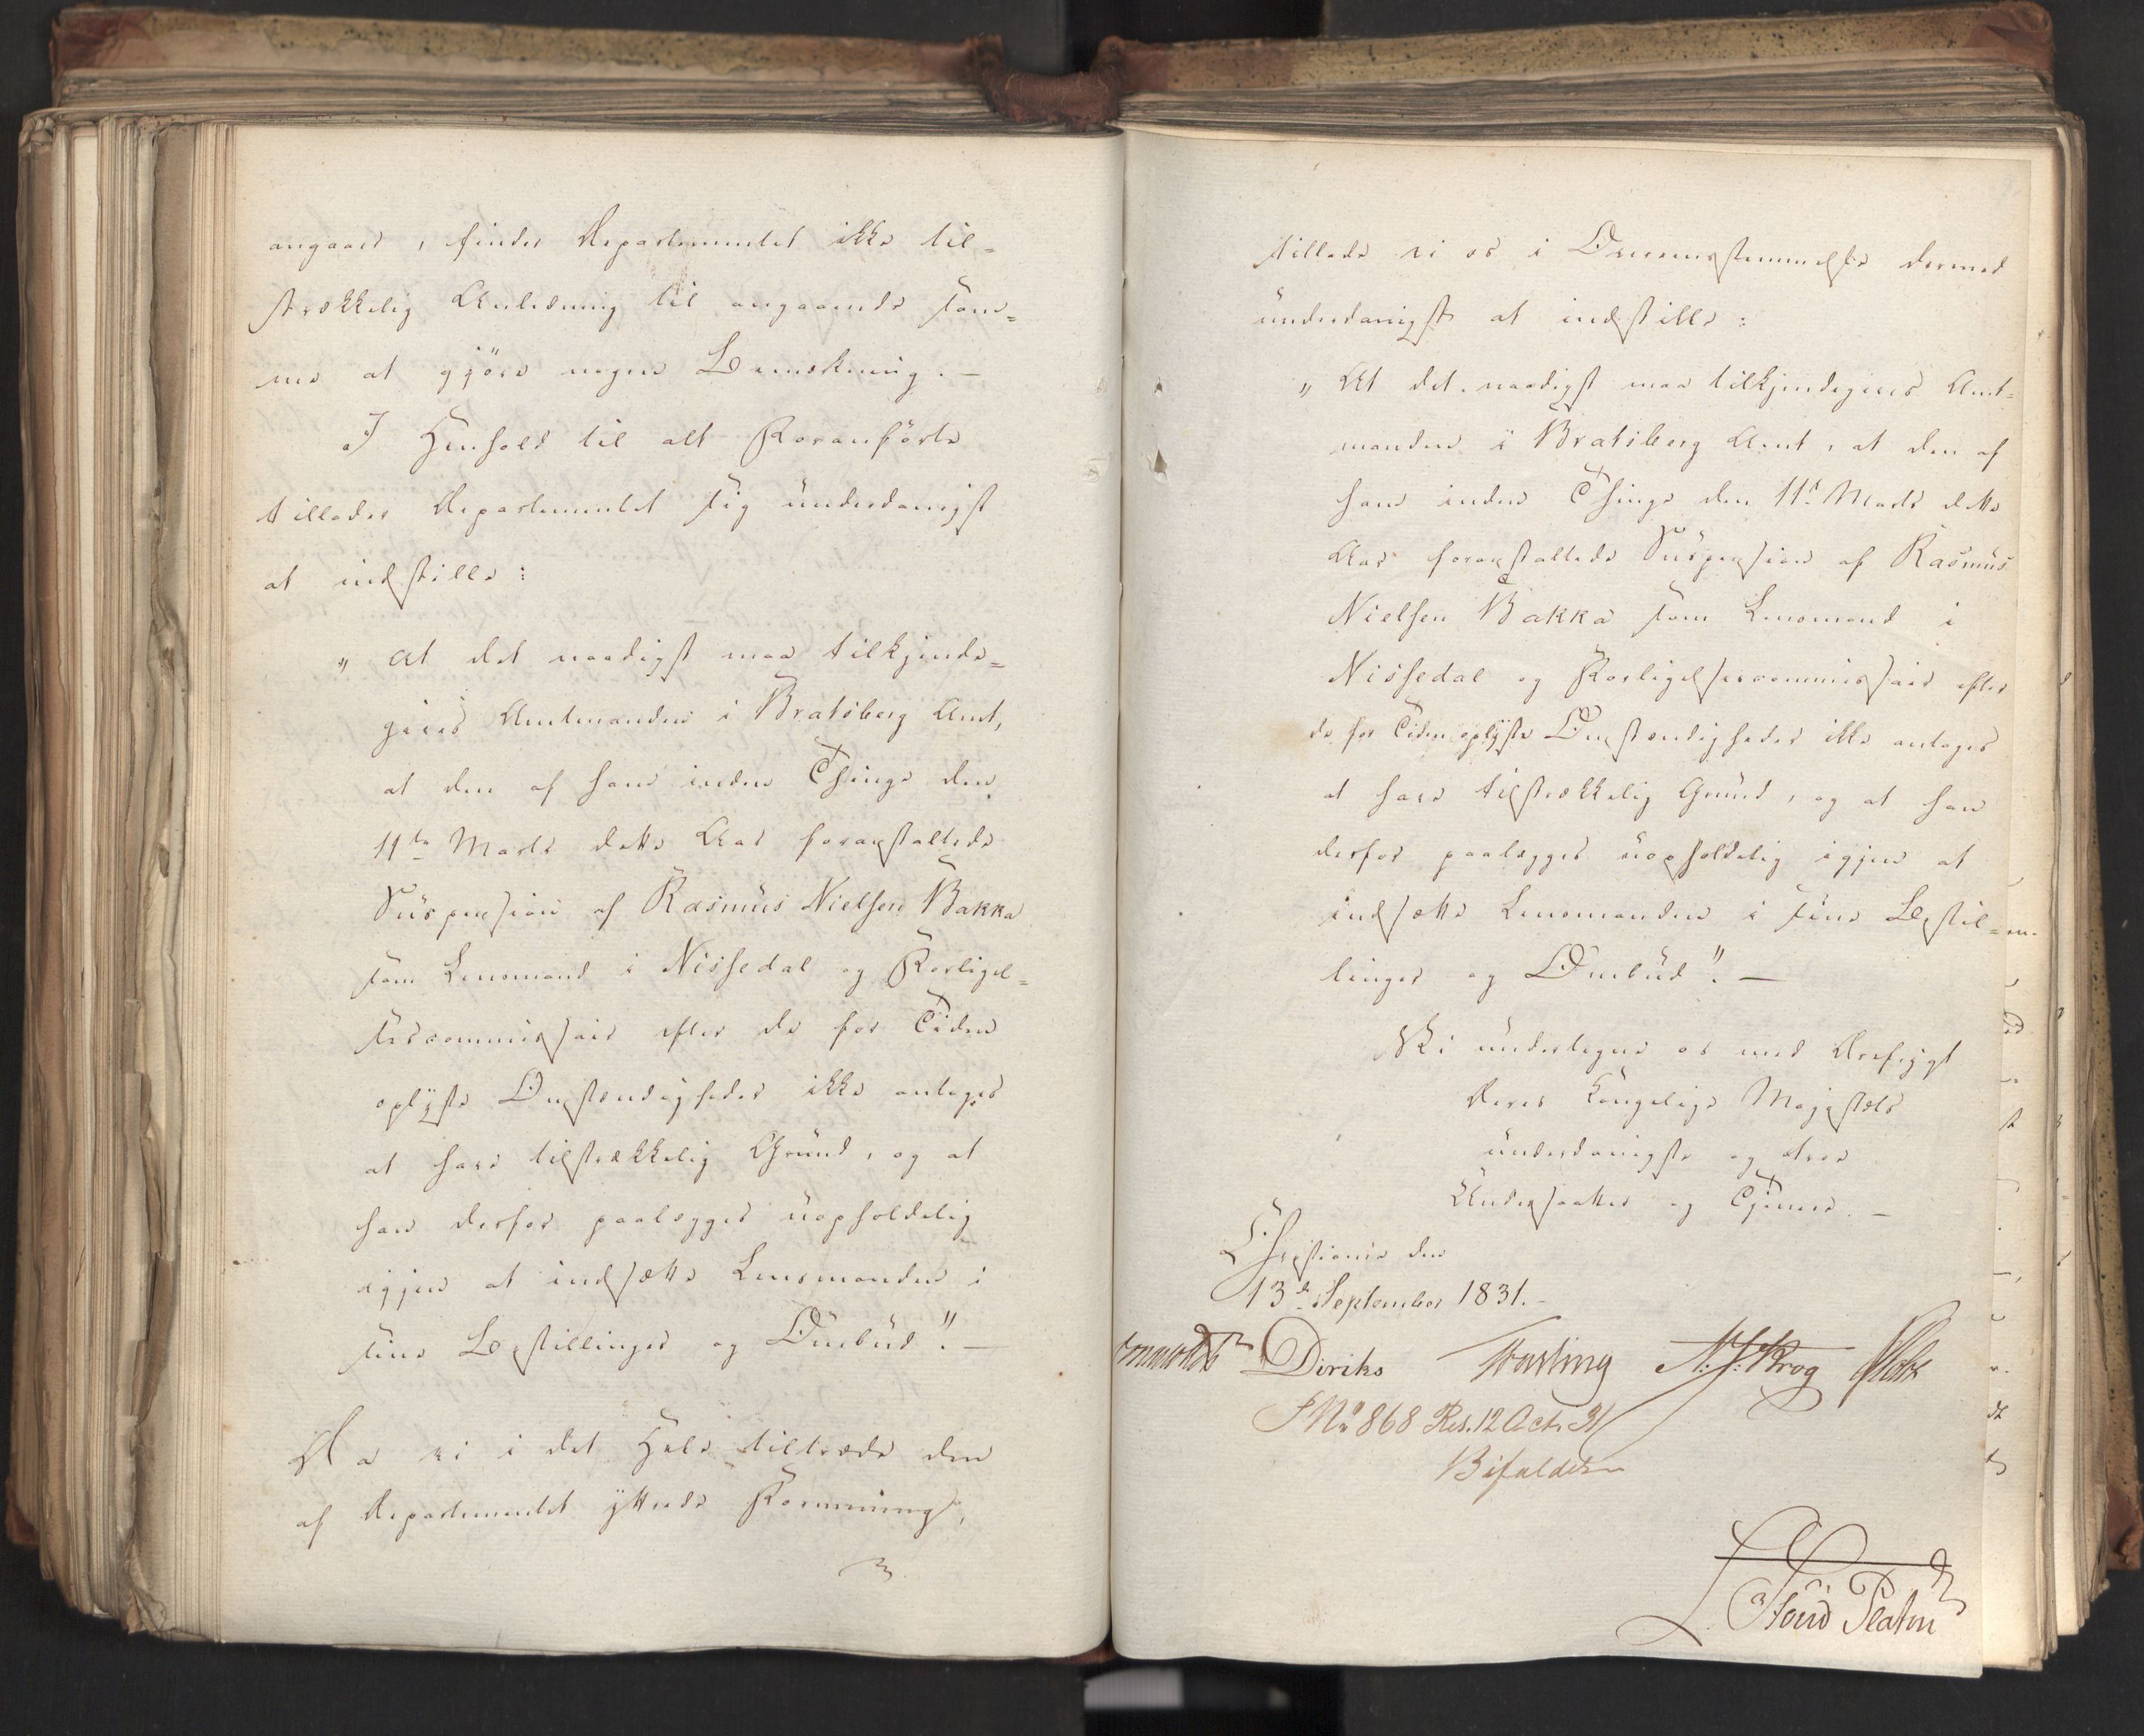 angaaer, finder Departementet ikke til=
strækkelig Anledning til angaaende sam=
me at gjöre nogen Bemærkning. —
I Henhold til alt Foranförte
tillader Departementet sig underdanigst
at indstille:
„ At det naadigst maa tilkjende=
gives Amtmanden i Bratsberg Amt,
at den af ham inden Thinge den
11te Marts dette Aar foranstaltede
Suspension af Rasmus Nielsen Bakka
som Lensmand i Nissedal og Forligel=
sescommissair efter de for Tiden
oplyste Omstændigheder ikke antages
at have tilstrækkelig Grund, og at
han derfor paalægges uopholdelig
igjen at indsætte Lensmanden i
sine Bestillinger og Ombud". —
Da vi i det Hele tiltræde den
af Departementet yttrede Formening,
tillade vi os i Overensstemmelse dermed
underdanigst at indstille:
„ At det naadigst maa tilkjendegives Amt=
manden i Bratsberg Amt, at den af
ham inden Thinge den 11te Marts dette
Aar foranstaltede Suspension af Rasmus
Nielsen Bakka som Lensmand i
Nissedal og Forligelsescommissair efter
de for Tiden oplyste Omstændigheder ikke antages
at have tilstrækkelig Grund, og at han
derfor paalægges uopholdelig igjen at
indsætte Lensmanden i sine Bestil=
linger og Ombud". —
Vi undertegne os med Ærefrygt
Deres Kongelige Majestæts
underdanigste og troe
Undersaatter og Tjenere. —
Christiania den
13de September 1831. -
Diriks N: J: Krog
J No 868 Res. 12 Oct. 31
Bifaldes
Houd Platou